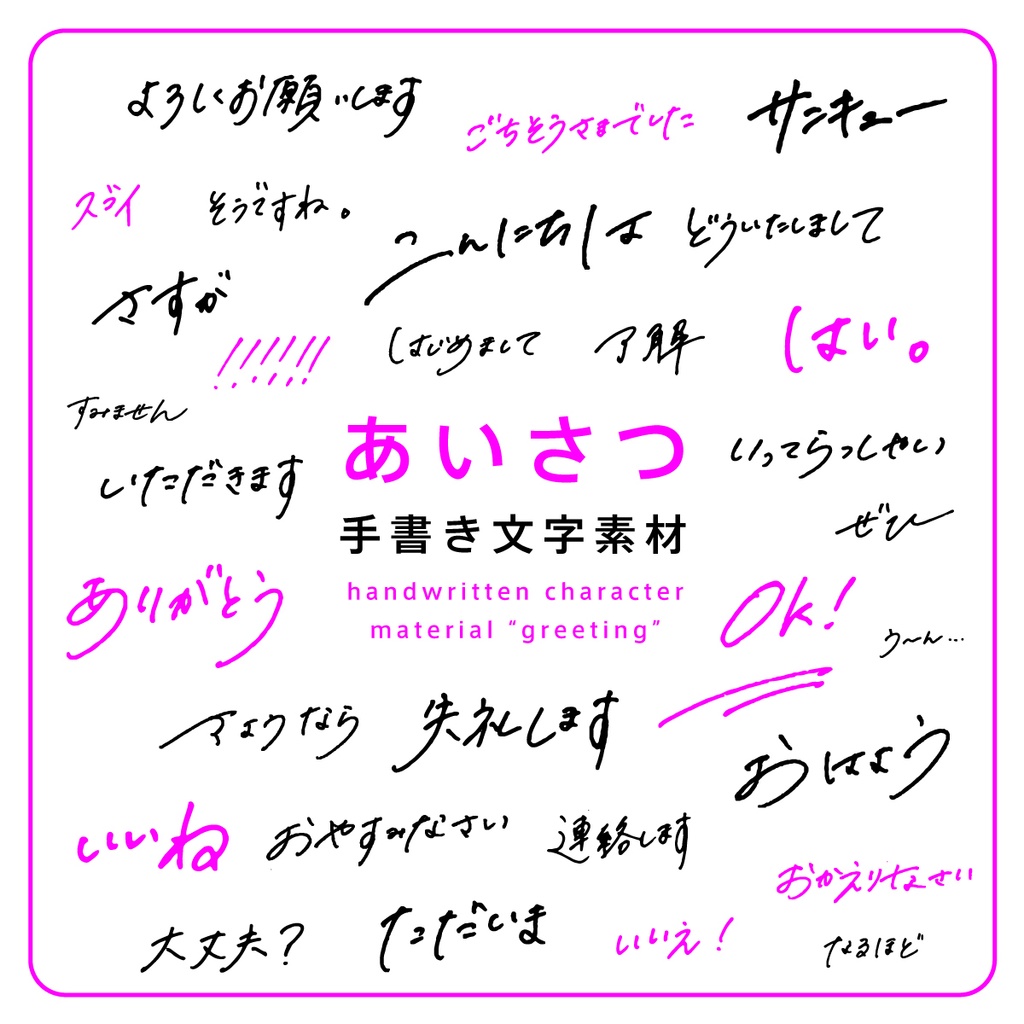 よろしくお願いします
ごちそうさまでした
サンキュー
スゴイ
そうですね。
こんにちは
どういたしまして
さすが
!!!!!!
はじめまして
了解
はい。
すみません
あいさつ
いってらっしゃい
いただきます
手書き文字素材
ぜひ
handwritten character
material “greeting”
ありがとう
Ok!
う〜ん…
さようなら
失礼します
おはよう
いいね
おやすみなさい
連絡します
おかえりなさい
大丈夫?
ただいま
いいえ!
なるほど